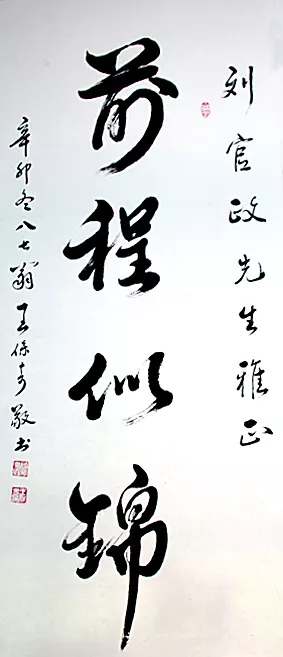 刘官政先生雅正
前程似锦
辛卯冬八七翁王保奇敬书